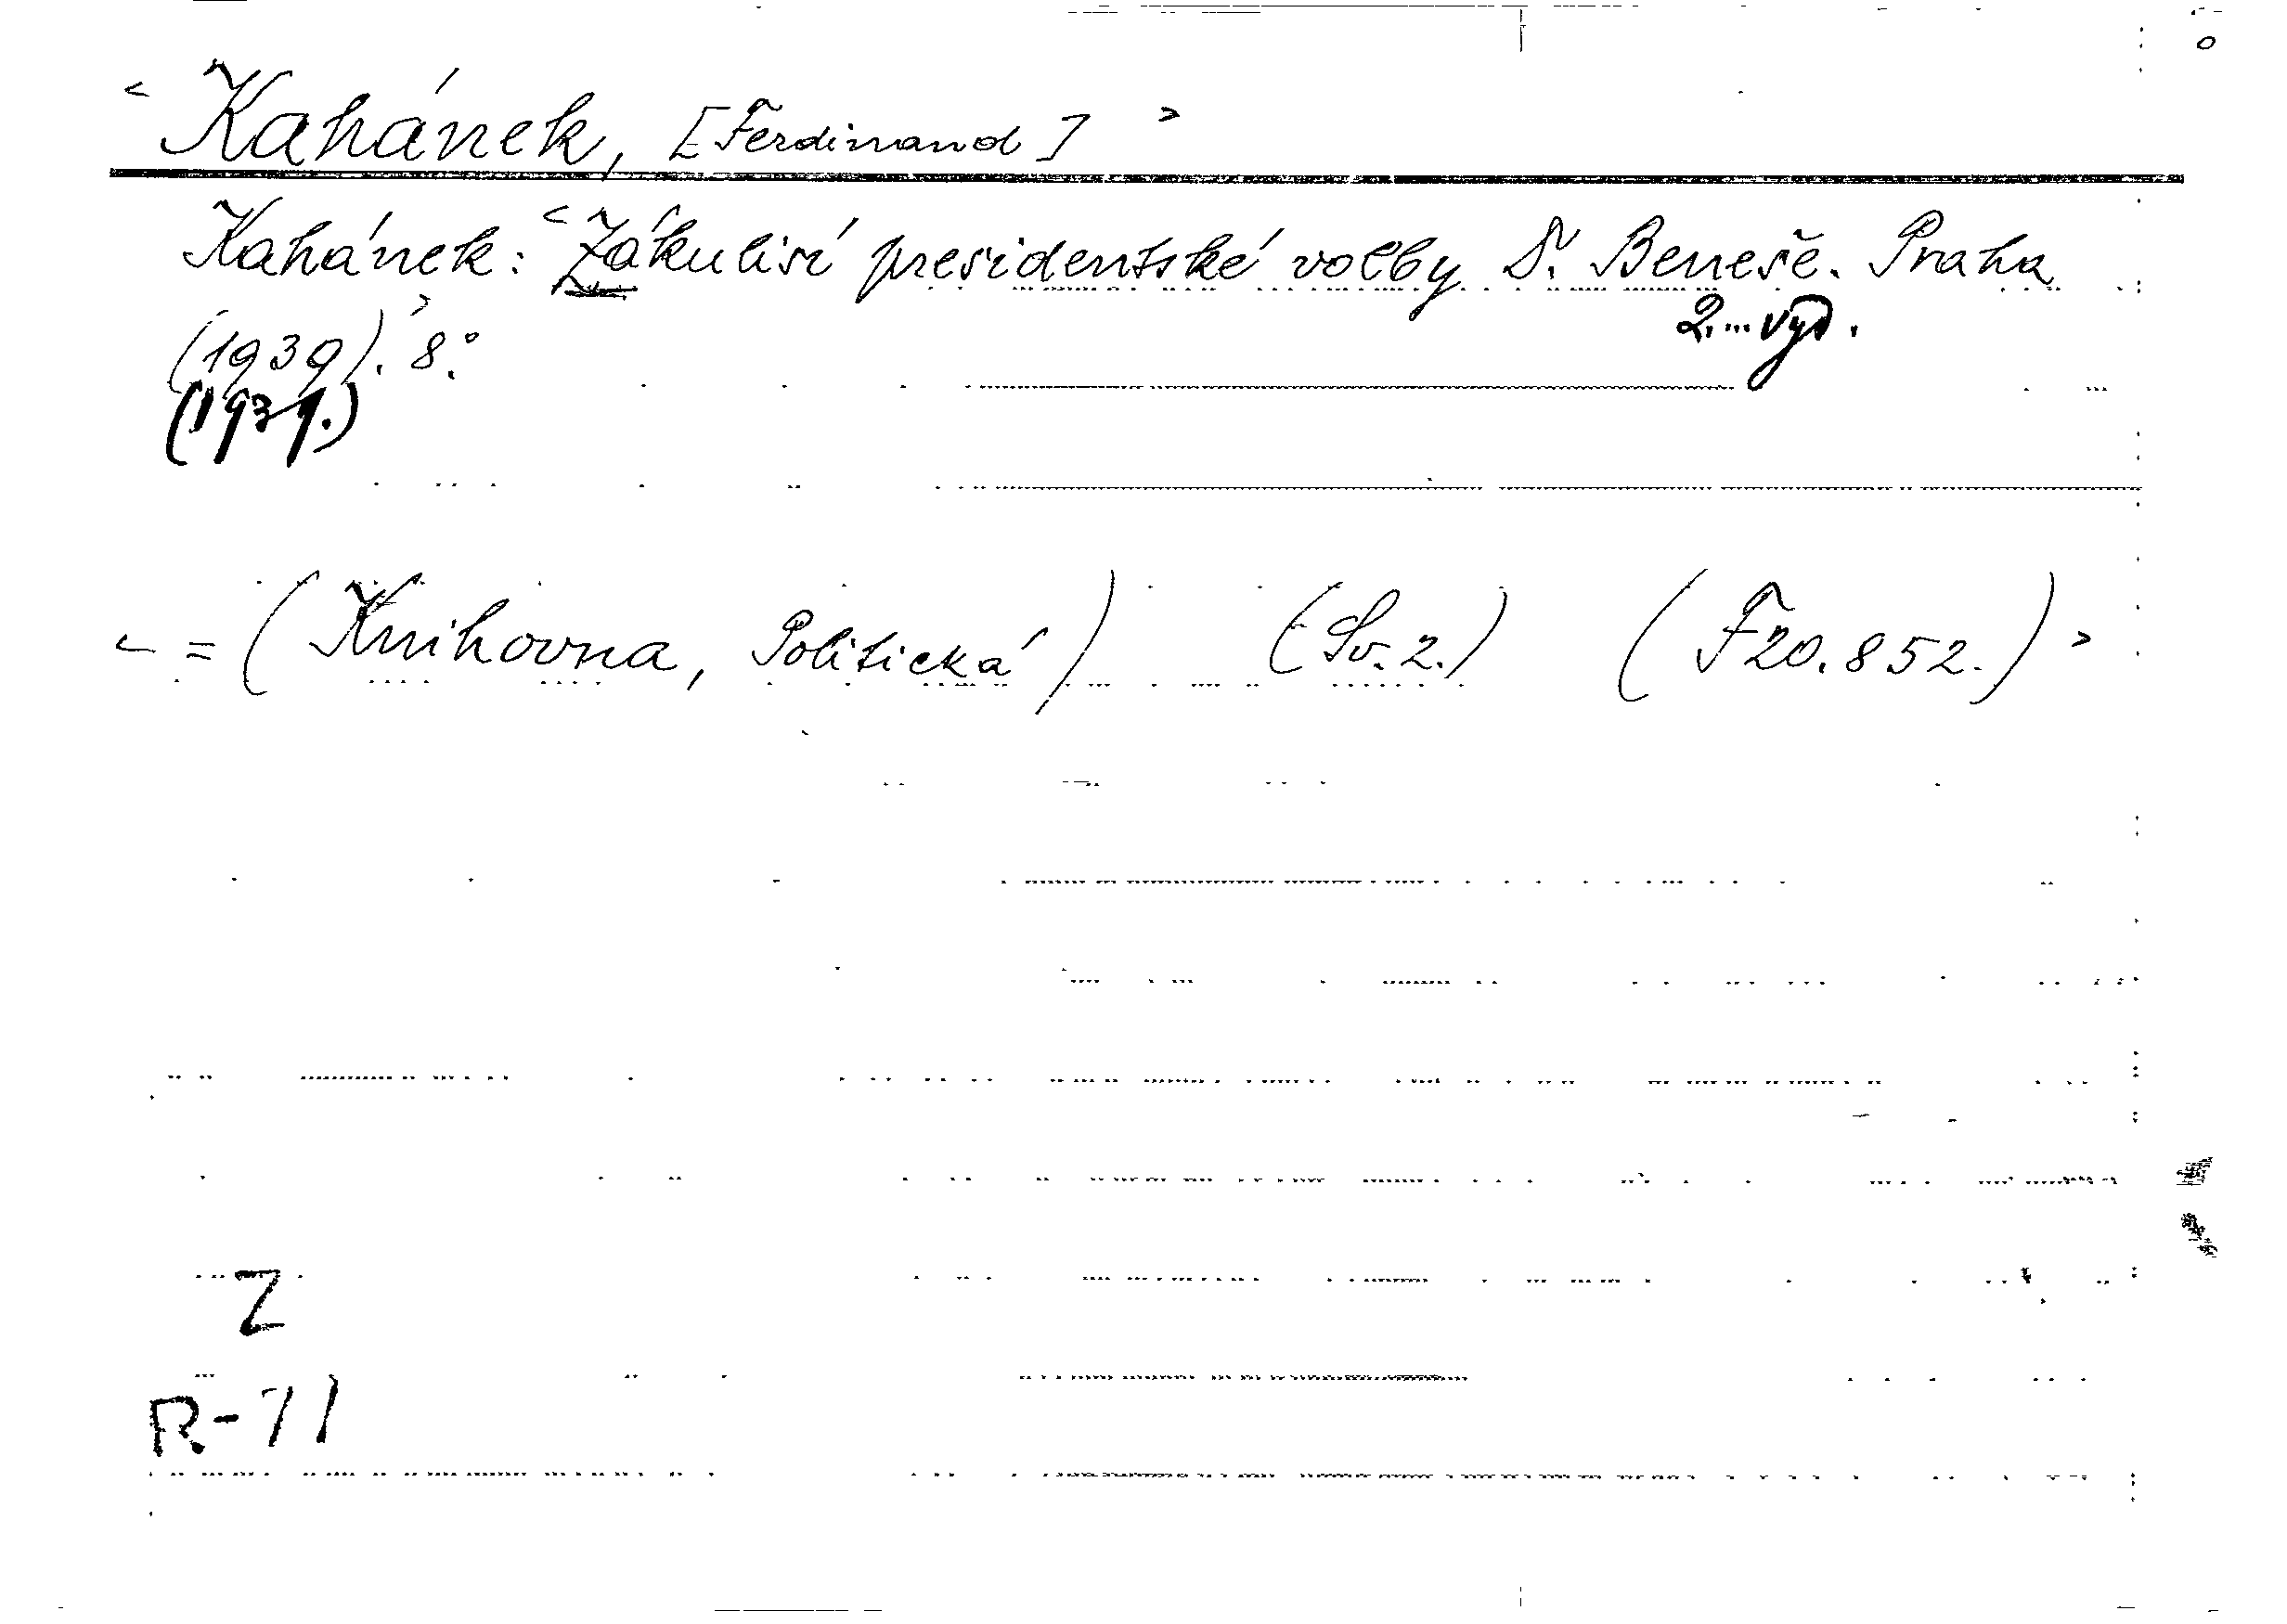 < Kahánek, [Ferdinand] >
Kahánek: <Zákulisí presidentské volby D. Beneše. Praha
2. ... vyd.
(1939).> 8°.
(1939.)
< = (Knihovna, Politická) (Sv. 2.) (F20.852.) >
Z
R-71